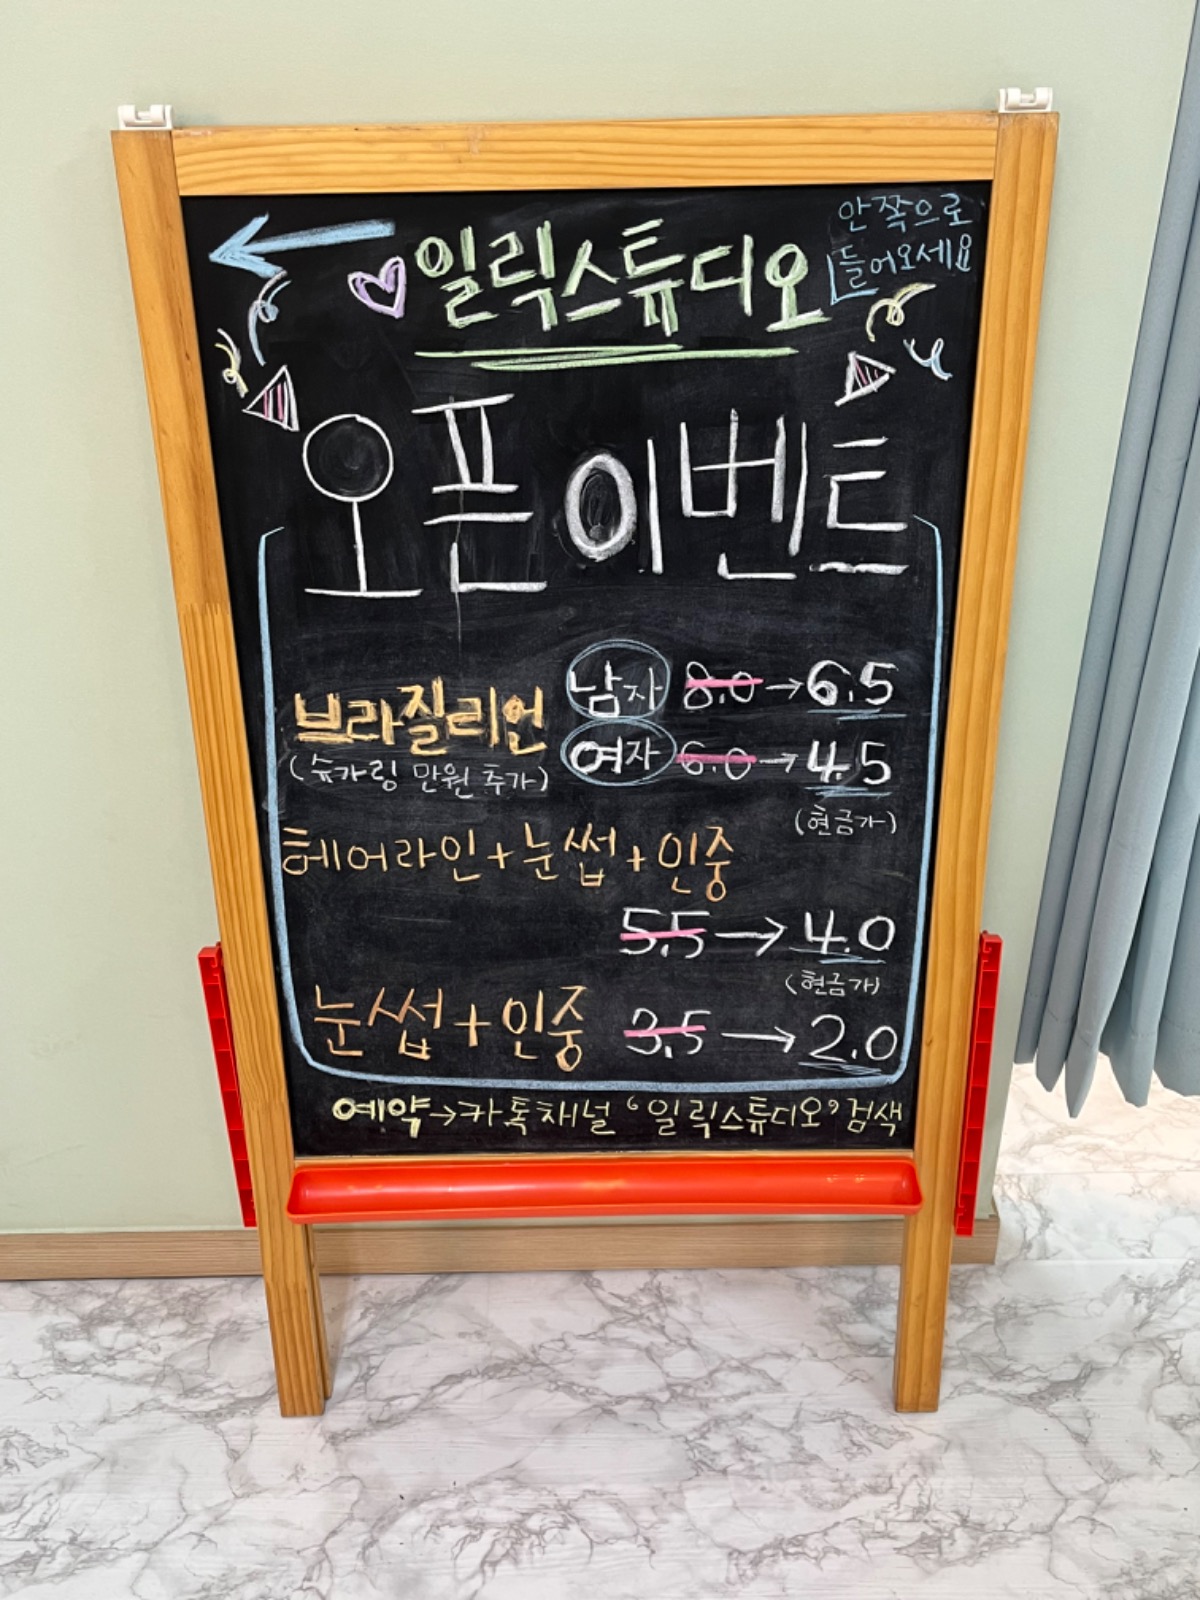 일릭스튜디오
안쪽으로
들어오세요
오픈이벤트
브라질리언
(슈가링 만원 추가)
남자 8.0→6.5
여자 6.0→4.5
(현금가)
헤어라인+눈썹+인중
5.5→4.0
(현금가)
눈썹+인중 3.5→2.0
예약→카톡채널 '일릭스튜디오' 검색